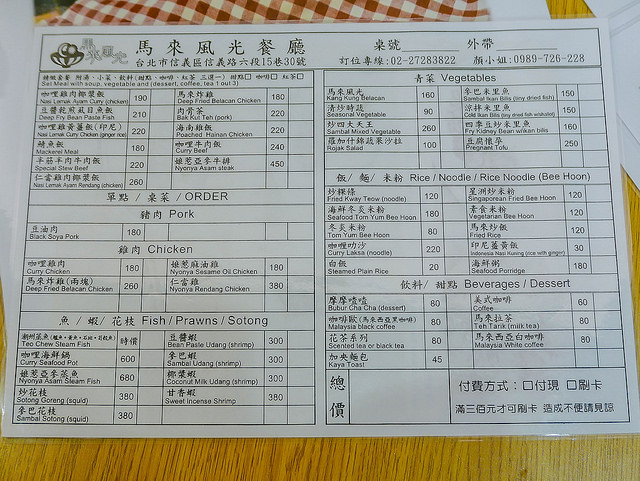 馬來風光餐廳 桌號 外帶
台北市信義區信義路六段15巷30號 訂位專線:02-27283822 顏小姐:0989-726-228
特級套餐 附湯、小菜、飲料(甜點、咖啡、紅茶 三選一) 甜點口 咖啡口 紅茶口
Set Meal with soup, vegetable and (dessert, coffee, tea 1 out 3)
咖哩雞肉椰漿飯 190 馬來炸雞 180
Nasi Lemak Ayam Curry (chicken) Deep Fried Belacan Chicken
豆醬乾煎虱目魚飯 210 肉骨茶 220
Deep Fry Bean Paste Fish Bak Kut Teh (pork)
咖哩雞黃薑飯(印尼) 220 海南雞飯 220
Poached Hainan Chicken
鯖魚飯 180 咖哩牛肉飯 240
Mackerel Meal Curry Beef
辛筋半肉牛肉飯 220 娘惹亞參牛排 450
Special Stew Beef Nyonya Asam steak
仁當雞肉椰漿飯 260
Nasi Lemak Ayam Rendang (chicken)
單點 / 桌菜 / ORDER
豬肉 Pork
豆油肉 180
Black Soya Pork
雞肉 Chicken
咖哩雞肉 180 娘惹麻油雞 180
Curry Chicken Nyonya Sesame Oil Chicken
馬來炸雞(兩塊) 260 仁當雞 380
Deep Fried Belacan Chicken Nyonya Rendang Chicken
魚 / 蝦 / 花枝 Fish / Prawns / Sotong
潮州蒸魚 時價 豆醬蝦 300
Teo Chew Steam Fish Bean Paste Udang (shrimp)
咖哩海鮮鍋 600 參巴蝦 300
Curry Seafood Pot Sambal Udang (shrimp)
娘惹亞參蒸魚 680 椰漿蝦 300
Nyonya Asam Steam Fish Coconut Milk Udang (shrimp)
炒花枝 380 甘香蝦 380
Sotong Goreng (squid) Sweet Incense Shrimp
參巴花枝 380
Sambal Sotong (squid)
青菜 Vegetables
馬來風光 160 參巴米里魚 150
Kang Kung Belacan Sambal Ikan Bilis (tiny dried fish)
清炒時蔬 90 涼拌米里魚 150
Seasonal Vegetable
炒四大天王 260 四季豆炒米里魚 160
Sambal Mixed Vegetable Fry Kidney Bean w/ikan bilis
羅加什錦蔬果沙拉 100 豆腐懷孕 250
Rojak Salad Pregnant Tofu
飯 / 麵 / 米粉 Rice / Noodle / Rice Noodle (Bee Hoon)
炒粿條 120 星洲炒米粉 120
Fried Kway Teow (noodle) Singaporean Fried Bee Hoon
海鮮冬炎米粉 180 素食米粉 120
Seafood Tom Yum Bee Hoon Vegetarian Bee Hoon
冬炎米粉 80 馬來炒飯 120
Tom Yum Bee Hoon Fried Rice
咖哩叻沙 220 印尼薑黃飯 30
Curry Laksa (noodle) Indonesia Nasi Kuning (rice with ginger)
白飯 20 海鮮粥 180
Steamed Plain Rice Seafood Porridge
飲料 / 甜點 Beverages / Dessert
摩摩喳喳 80 美式咖啡 60
Bubur Cha Cha (dessert) Coffee
咖啡歐(馬來西亞黑咖啡) 80 馬來拉茶 80
Malaysia black coffee Teh Tarik (milk tea)
花茶系列 80 馬來西亞白咖啡 80
Scented tea or black tea Malaysia White coffee
加央麵包 45
Kaya Toast
總價 付費方式:口付現 口刷卡
滿三佰元才可刷卡 造成不便請見諒